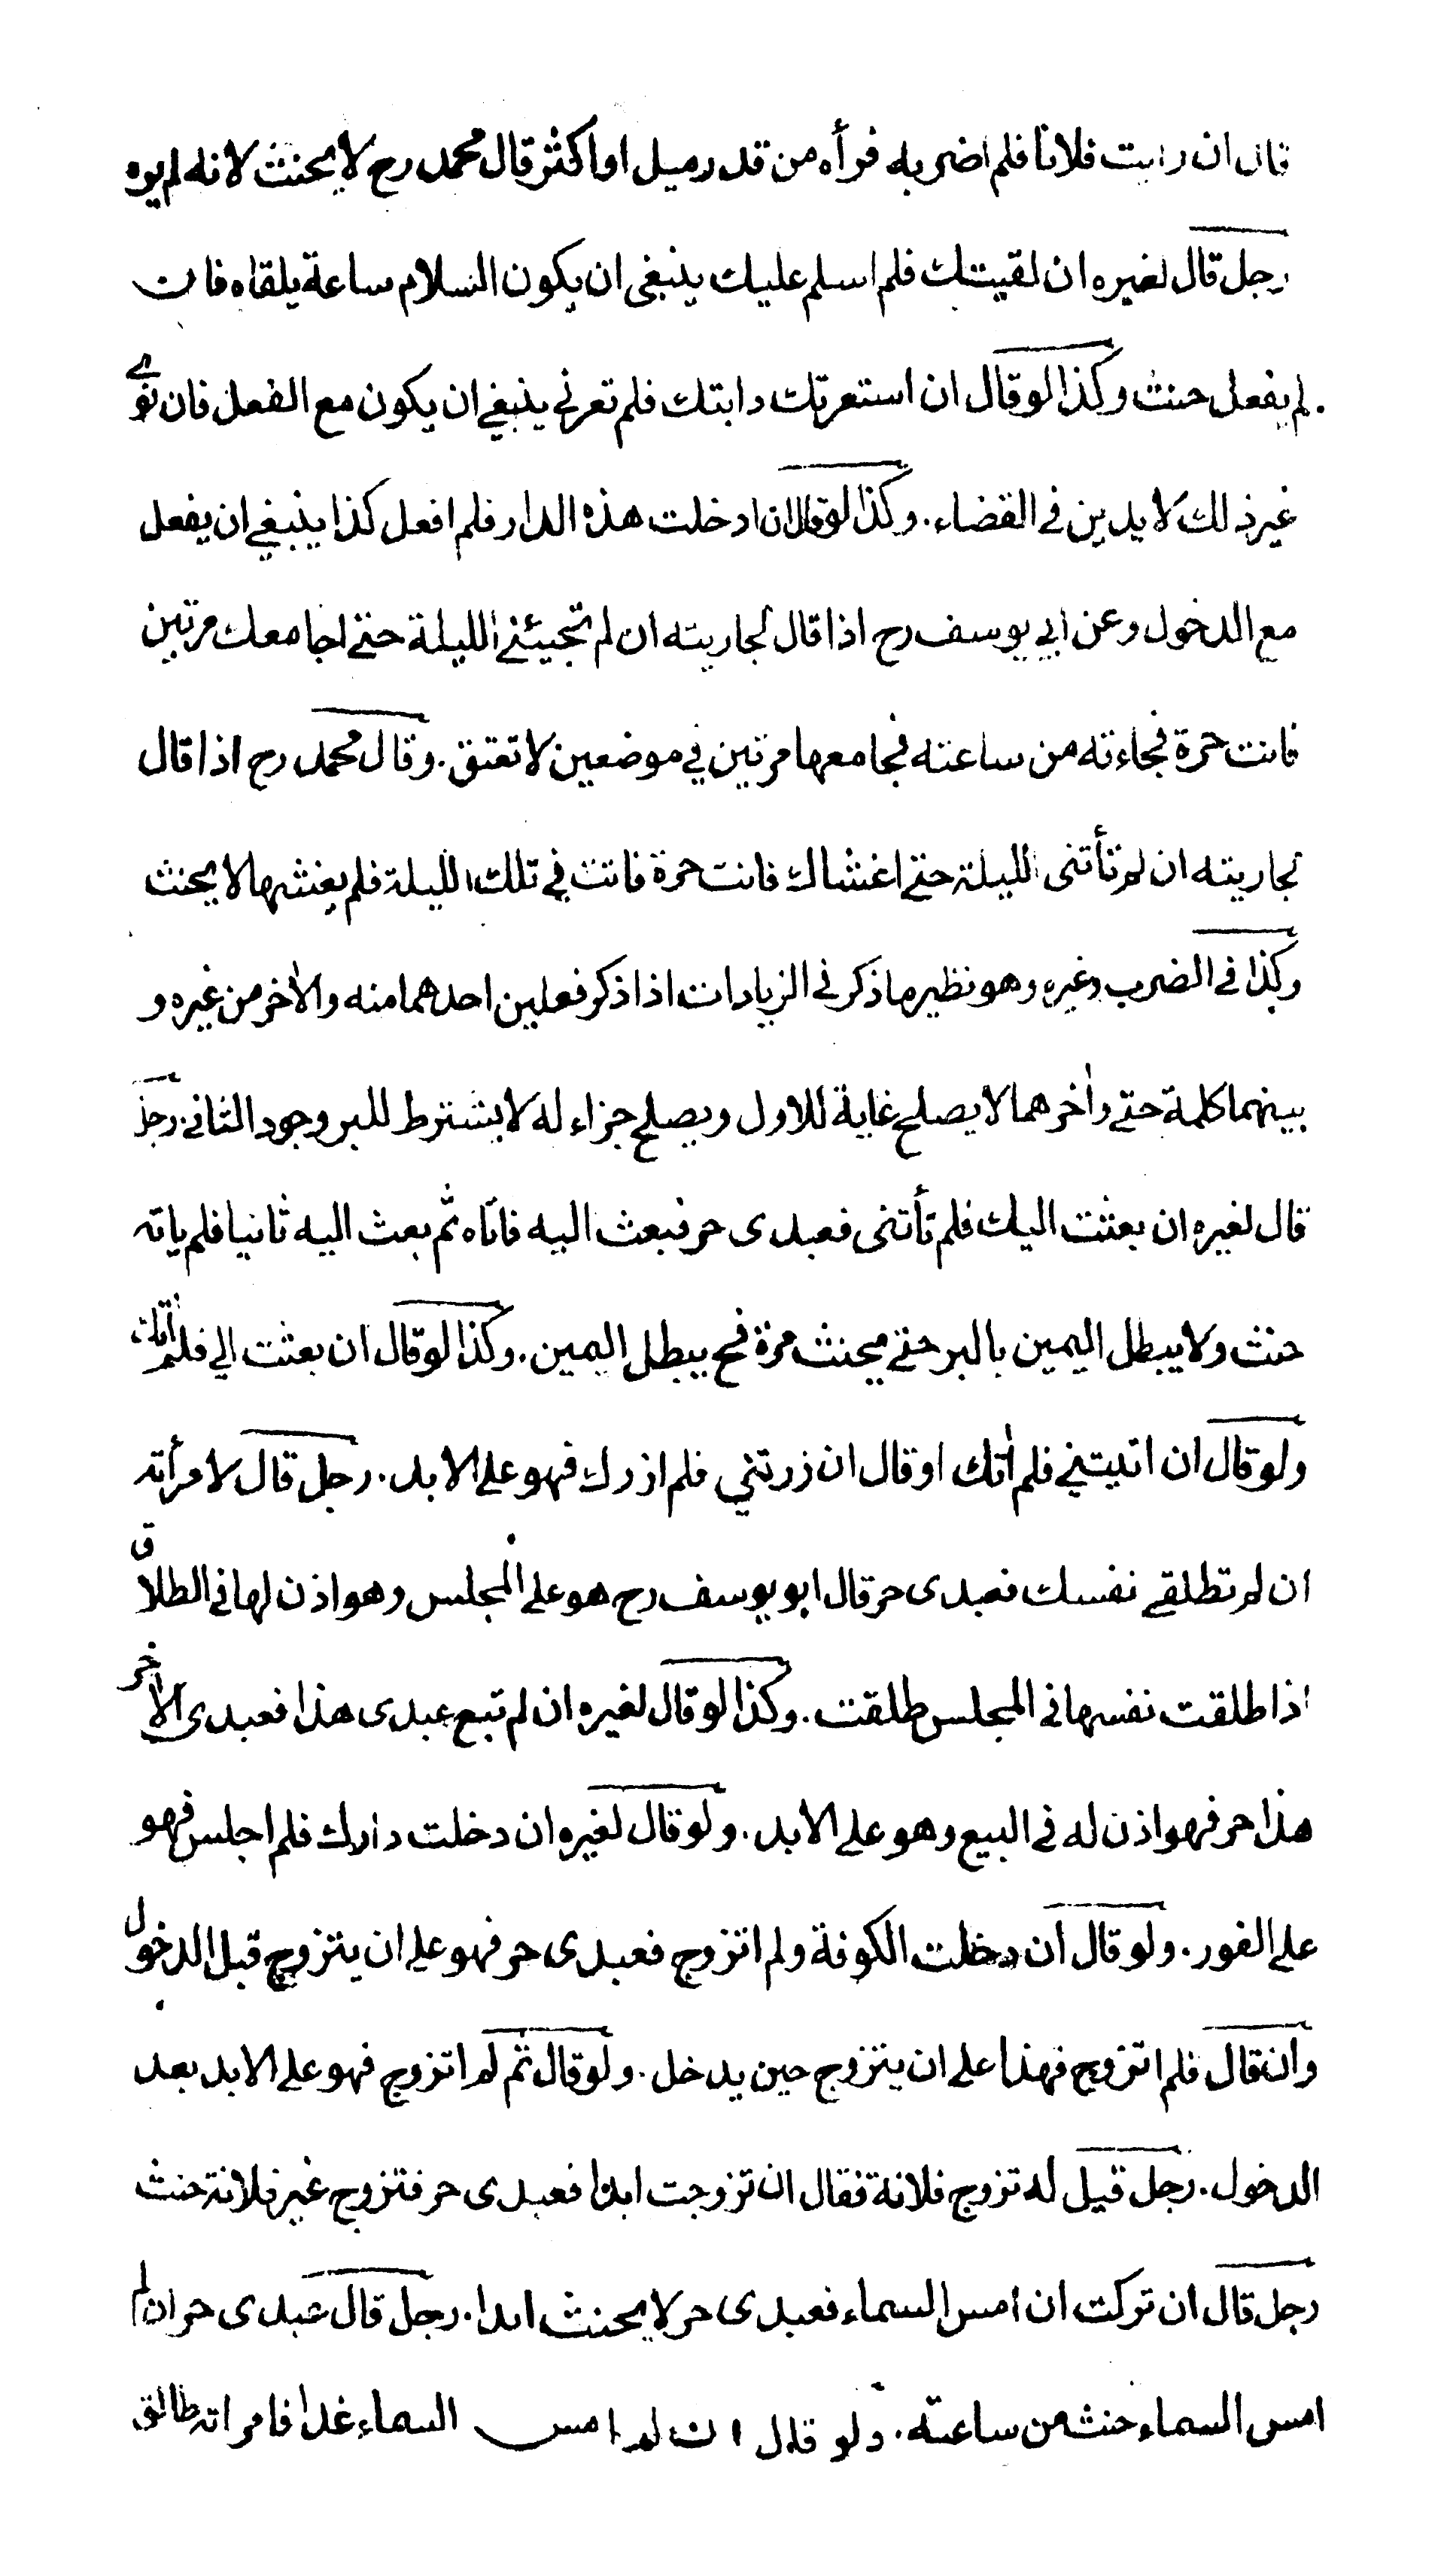 قال ان رايت فلانا فلم اضربه فرأه من قدر ميل او اكثر قال محمد رح لا يحنث لانه لم يره
رجل قال لغيره ان لقيتك فلم اسلم عليك ينبغى ان يكون السلام ساعة يلقاه فان
لم يفعل حنث وكذا لو قال ان استعرتك دابتك فلم تعرني ينبغي ان يكون مع الفعل فان نوى
غير ذلك لا يدين في القضاء. وكذا لو قال ان ادخلت هذه الدار فلم افعل كذا ينبغي ان يفعل
مع الدخول وعن ابي يوسف رح اذا قال لجاريته ان لم تجيئني الليلة حتى اجامعك مرتين
فانت حرة فجاءته من ساعته فجامعها مرتين في موضعين لا تعتق. وقال محمد رح اذا قال
لجاريته ان لم تأتنى الليلة حتى اغشاك فانت حرة فاتت في تلك الليلة فلم يغشها لا يحنث
وكذا في الضرب وغيره وهو نظير ما ذكر في الزيادات اذا ذكر فعلين احدهما منه والاخر من غيره و
بينهما كلمة حتى واخرهما لا يصلح غاية للاول ويصلح جزاء له لا يشترط للبر وجود الثاني. رجل
قال لغيره ان بعثت اليك فلم تأتنى فعبدى حر فبعث اليه فاتاه ثم بعث اليه ثانيا فلم ياته
حنث ولا يبطل اليمين بالبر حتى يحنث مرة فح يبطل اليمين. وكذا لو قال ان بعثت الي فلم اتك
ولو قال ان اتيتني فلم اتك او قال ان زرتني فلم ازرك فهو على الابد. رجل قال لامرأته
ان لم تطلقي نفسك فعبدى حر قال ابو يوسف رح هو على المجلس وهو اذن لها في الطلاق
اذا طلقت نفسها في المجلس طلقت. وكذا لو قال لغيره ان لم تبع عبدى هذا فعبدى الاخر
هذا حر فهو اذن له في البيع وهو على الابد. ولو قال لغيره ان دخلت دارك فلم اجلس فهو
على الفور. ولو قال ان دخلت الكوفة ولم اتزوج فعبدى حر فهو على ان يتزوج قبل الدخول
وان قال فلم اتزوج فهذا على ان يتزوج حين يدخل. ولو قال ثم لم اتزوج فهو على الابد بعد
الدخول. رجل قيل له تزوج فلانة فقال ان تزوجت ابدا فعبدى حر فتزوج غير فلانة حنث
رجل قال ان تركت ان امس السماء فعبدى حر لا يحنث ابدا. رجل قال عبدى حر ان لم
امس السماء حنث من ساعته. ولو قال ان لم امس السماء غدا فامراته طالق